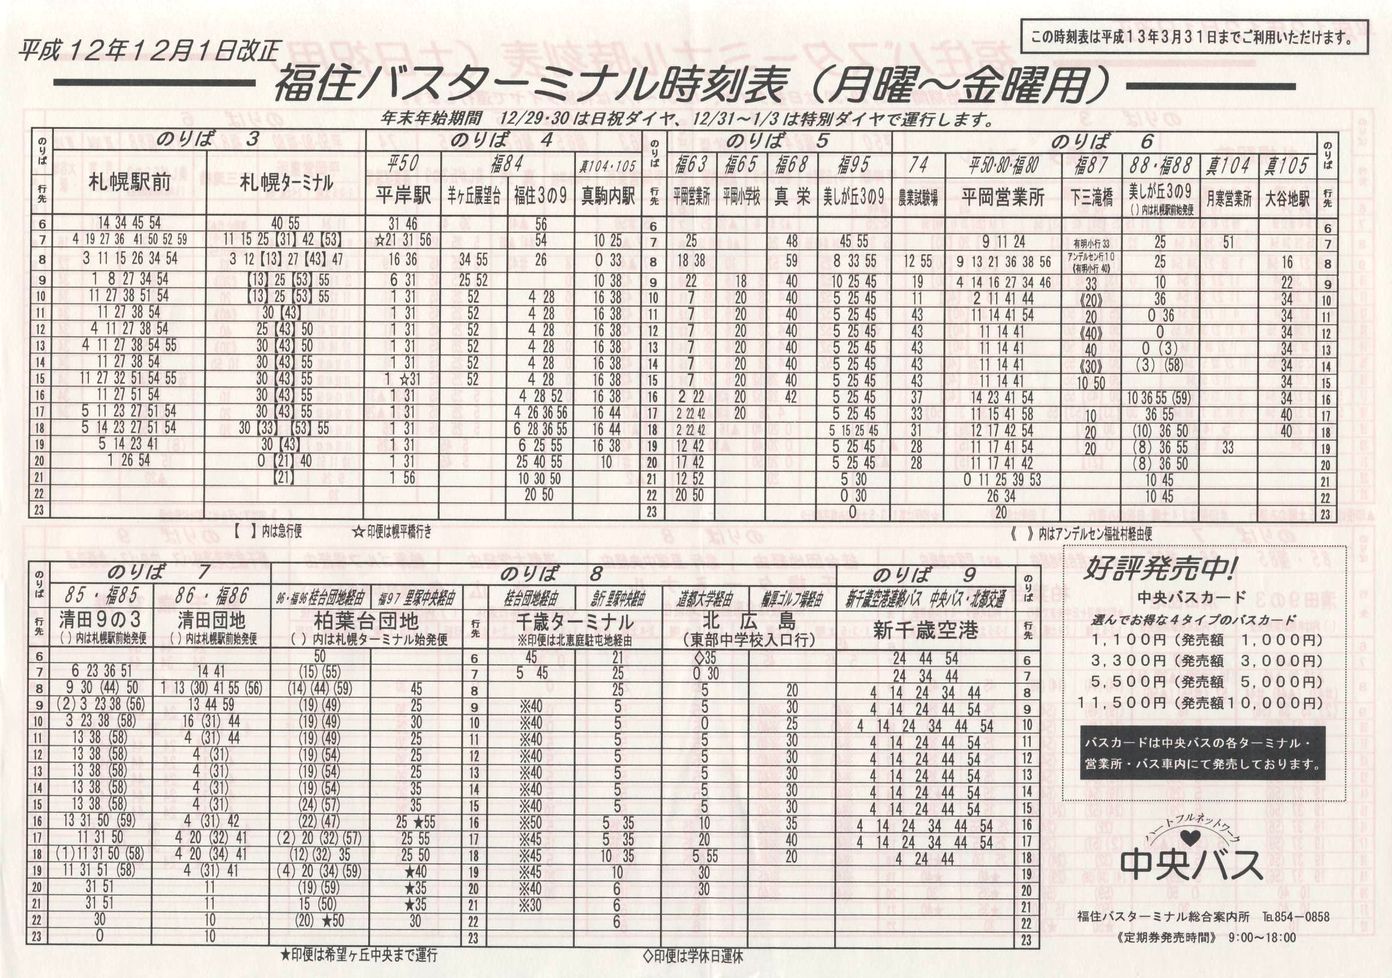 平成12年12月1日改正
この時刻表は平成13年3月31日までご利用いただけます。
福住バスターミナル時刻表（月曜～金曜用）
年末年始期間　12/29・30は日祝ダイヤ、12/31～1/3は特別ダイヤで運行します。
のりば のりば 3 のりば 4 のりば のりば 5 のりば 6 のりば
平50 福84 真104・105 福63 福65 福68 福95 74 平50・80・福80 福87 88・福88 真104 真105
行先 札幌駅前 札幌ターミナル 平岸駅 羊ケ丘展望台 福住3の9 真駒内駅 行先 平岡営業所 平岡小学校 真栄 美しが丘3の9 農業試験場 平岡営業所 下三滝橋 美しが丘3の9 ( )内は札幌駅前始発便 月寒営業所 大谷地駅 行先
6 14 34 45 54 40 55 31 46 56 6 6
7 4 19 27 36 41 50 52 59 11 15 25【31】42【53】 ☆21 31 56 54 10 25 7 25 48 45 55 9 11 24 有明小行33 25 51 7
8 3 11 15 26 34 54 3 12【13】27【43】47 16 36 34 55 26 0 33 8 18 38 59 8 33 55 12 55 9 13 21 36 38 56 アンデルセン行10 《有明小行40》 25 16 8
9 1 8 27 34 54 【13】25【53】55 6 31 25 52 10 38 9 22 18 40 10 25 45 19 4 14 16 27 34 46 33 10 22 9
10 11 27 38 51 54 【13】25【53】55 1 31 52 4 28 16 38 10 7 20 40 5 25 45 11 2 11 41 44 《20》 36 34 10
11 11 27 38 54 30【43】 1 31 52 4 28 16 38 11 7 20 40 5 25 45 43 11 14 41 54 20 0 36 34 11
12 4 11 27 38 54 25【43】50 1 31 52 4 28 16 38 12 7 20 40 5 25 45 43 11 14 41 《40》 0 34 12
13 4 11 27 38 54 55 30【43】50 1 31 52 4 28 16 38 13 7 20 40 5 25 45 43 11 14 41 40 0 (3) 34 13
14 11 27 38 54 30【43】55 1 31 52 4 28 16 38 14 7 20 40 5 25 45 43 11 14 41 《30》 (3) (58) 34 14
15 11 27 32 51 54 55 30【43】55 1 ☆31 52 4 28 16 38 15 7 20 40 5 25 45 43 11 14 41 10 50 34 15
16 11 27 51 54 30【43】55 1 31 4 28 52 16 38 16 2 22 20 42 5 25 45 37 14 23 41 54 10 36 55 (59) 34 16
17 5 11 23 27 51 54 30【43】55 1 31 4 26 36 56 16 44 17 2 22 42 20 5 25 45 33 11 15 41 58 10 36 55 40 17
18 5 14 23 27 51 54 30【33】【53】55 1 31 6 28 36 55 16 44 18 2 22 42 5 15 25 45 31 12 17 42 54 20 (10) 36 50 40 18
19 5 14 23 41 30【43】 1 31 6 25 55 16 38 19 12 42 5 25 45 28 11 17 41 54 20 (8) 36 55 33 19
20 1 26 54 0【21】40 1 31 25 40 55 10 20 17 42 5 25 45 28 11 17 41 42 (8) 36 50 20
21 【21】 1 56 10 30 50 21 12 52 5 30 0 11 25 39 53 10 45 21
22 20 50 22 20 50 0 30 26 34 10 45 22
23 23 0 20 23
【 】内は急行便 ☆印便は幌平橋行き 《 》内はアンデルセン福祉村経由便
のりば のりば 7 のりば 8 のりば 9 のりば
85・福85 86・福86 96・福96 桂台団地経由 福97 里塚中央経由 桂台団地経由 急行 里塚中央経由 道都大学経由 輪厚ゴルフ場経由 新千歳空港連絡バス 中央バス・北都交通
行先 清田9の3 ( )内は札幌駅前始発便 清田団地 ( )内は札幌駅前始発便 柏葉台団地 ( )内は札幌ターミナル始発便 行先 千歳ターミナル ※印便は北恵庭駐屯地経由 北広島 (東部中学校入口行) 新千歳空港 行先
6 50 6 45 21 ◇35 24 44 54 6
7 6 23 36 51 14 41 (15) (55) 7 5 45 25 0 30 24 34 44 7
8 9 30 (44) 50 1 13 (30) 41 55 (56) (14) (44) (59) 45 8 25 5 20 4 14 24 34 44 8
9 (2) 3 23 38 (56) 13 44 59 (19) (49) 25 9 ※40 5 5 30 4 14 24 44 54 9
10 3 23 38 (58) 16 (31) 44 (19) (49) 30 10 ※40 5 0 25 4 14 24 34 44 54 10
11 13 38 (58) 4 (31) 44 (19) (49) 25 11 ※40 5 5 30 4 14 24 44 54 11
12 13 38 (58) 4 (31) (19) (54) 25 12 ※40 5 5 30 4 14 24 44 54 12
13 13 38 (58) 4 (31) (19) (54) 25 13 ※40 5 5 30 4 14 24 44 54 13
14 13 38 (58) 4 (31) (19) (54) 35 14 ※40 5 5 30 4 14 24 44 54 14
15 13 38 (58) 4 (31) (24) (57) 35 15 ※40 5 5 30 4 14 24 44 54 15
16 13 31 50 (59) 4 (31) 42 (22) (47) 25 ★55 16 ※50 5 35 10 35 4 14 24 34 44 54 16
17 11 31 50 4 20 (32) 41 (2) 20 (32) (57) 25 55 17 ※45 5 35 20 40 4 14 24 34 44 54 17
18 (1) 11 31 50 (58) 4 20 (34) 41 (12) (32) 35 25 50 18 ※45 10 35 5 55 20 4 24 44 18
19 11 31 51 (58) 4 (31) 41 (4) 20 (34) (59) ★40 19 ※45 10 30 19
20 31 51 11 (19) (59) ★35 20 ※40 6 30 20
21 31 51 11 15 (50) ★35 21 ※30 6 21
22 30 10 (20) ★50 30 22 6 22
23 0 10 23 23
★印便は希望ヶ丘中央まで運行 ◇印便は学休日運休
好評発売中!
中央バスカード
選んでお得な4タイプのバスカード
1,100円（発売額　1,000円）
3,300円（発売額　3,000円）
5,500円（発売額　5,000円）
11,500円（発売額10,000円）
バスカードは中央バスの各ターミナル・
営業所・バス車内にて発売しております。
ハートフルネットワーク
中央バス
福住バスターミナル総合案内所　℡854-0858
《定期券発売時間》　9:00～18:00